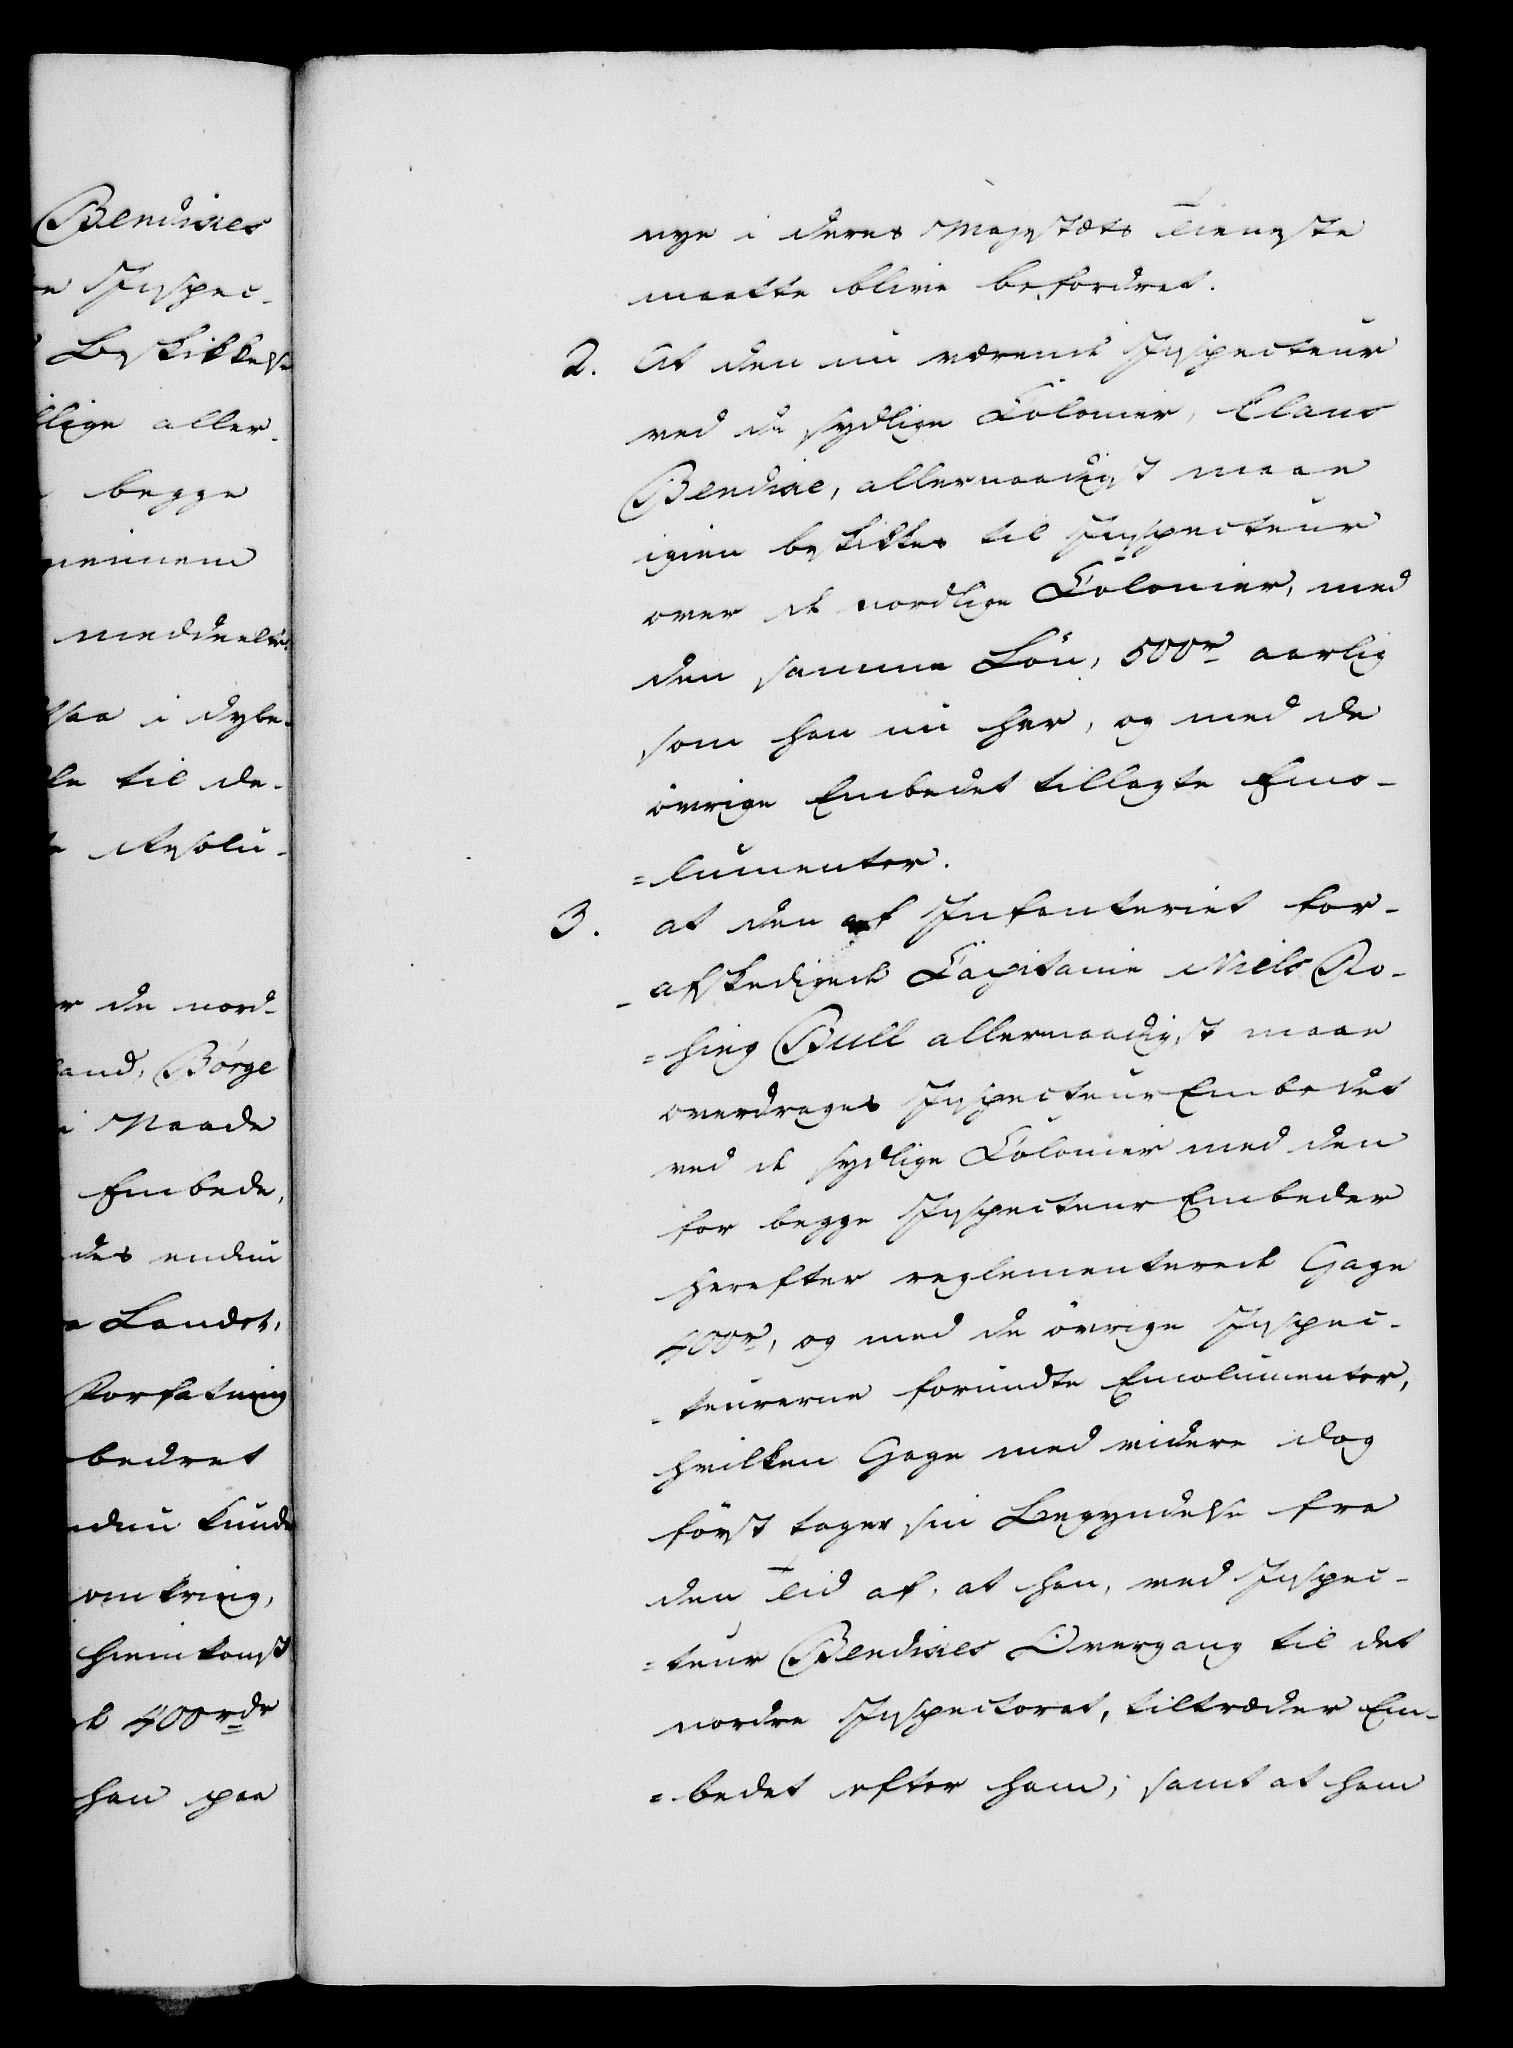 Bendixes
Inspec-
Beskikkelse
lige aller-
begge
meddeele
saa i dybe-
til de-
Resolu-
de nord-
land, Børge
Naade
Embede,
des endnu
Landet,
Forfatning
bedret
endnu kunde
omkring,
Hiemkomst
400rdr
han paa
nye i Deres Majestæts Tieneste
maatte blive befordret.
2. At den nu værende Inspecteur
ved de sydlige Colonier, Claus
Bendixe, allernaadigst maae
igien beskikkes til Inspecteur
over de nordlige Colonier, med
den samme Løn, 500r aarlig
som han nu har, og med de
øvrige Embedet tillagte Emo-
=lumenter.
3. at den af Infanteriet for-
-afskedigede Capitaine Niels Ro-
=sing Bull allernaadigst maae
overdrages Inspecteur Embedet
ved de sydlige Colonier med den
for begge Inspecteur Embeder
herefter reglementerede Gage
400r, og med de øvrige Inspec-
-teurerne forundte Emolumenter,
hvilken Gage med videre dog
først tager sin Begyndelse fra
den Tid af, at han, ved Inspec-
=teur Bendixes Overgang til det
nordre Inspectorat, tiltræder Em-
=bedet efter ham; samt at ham